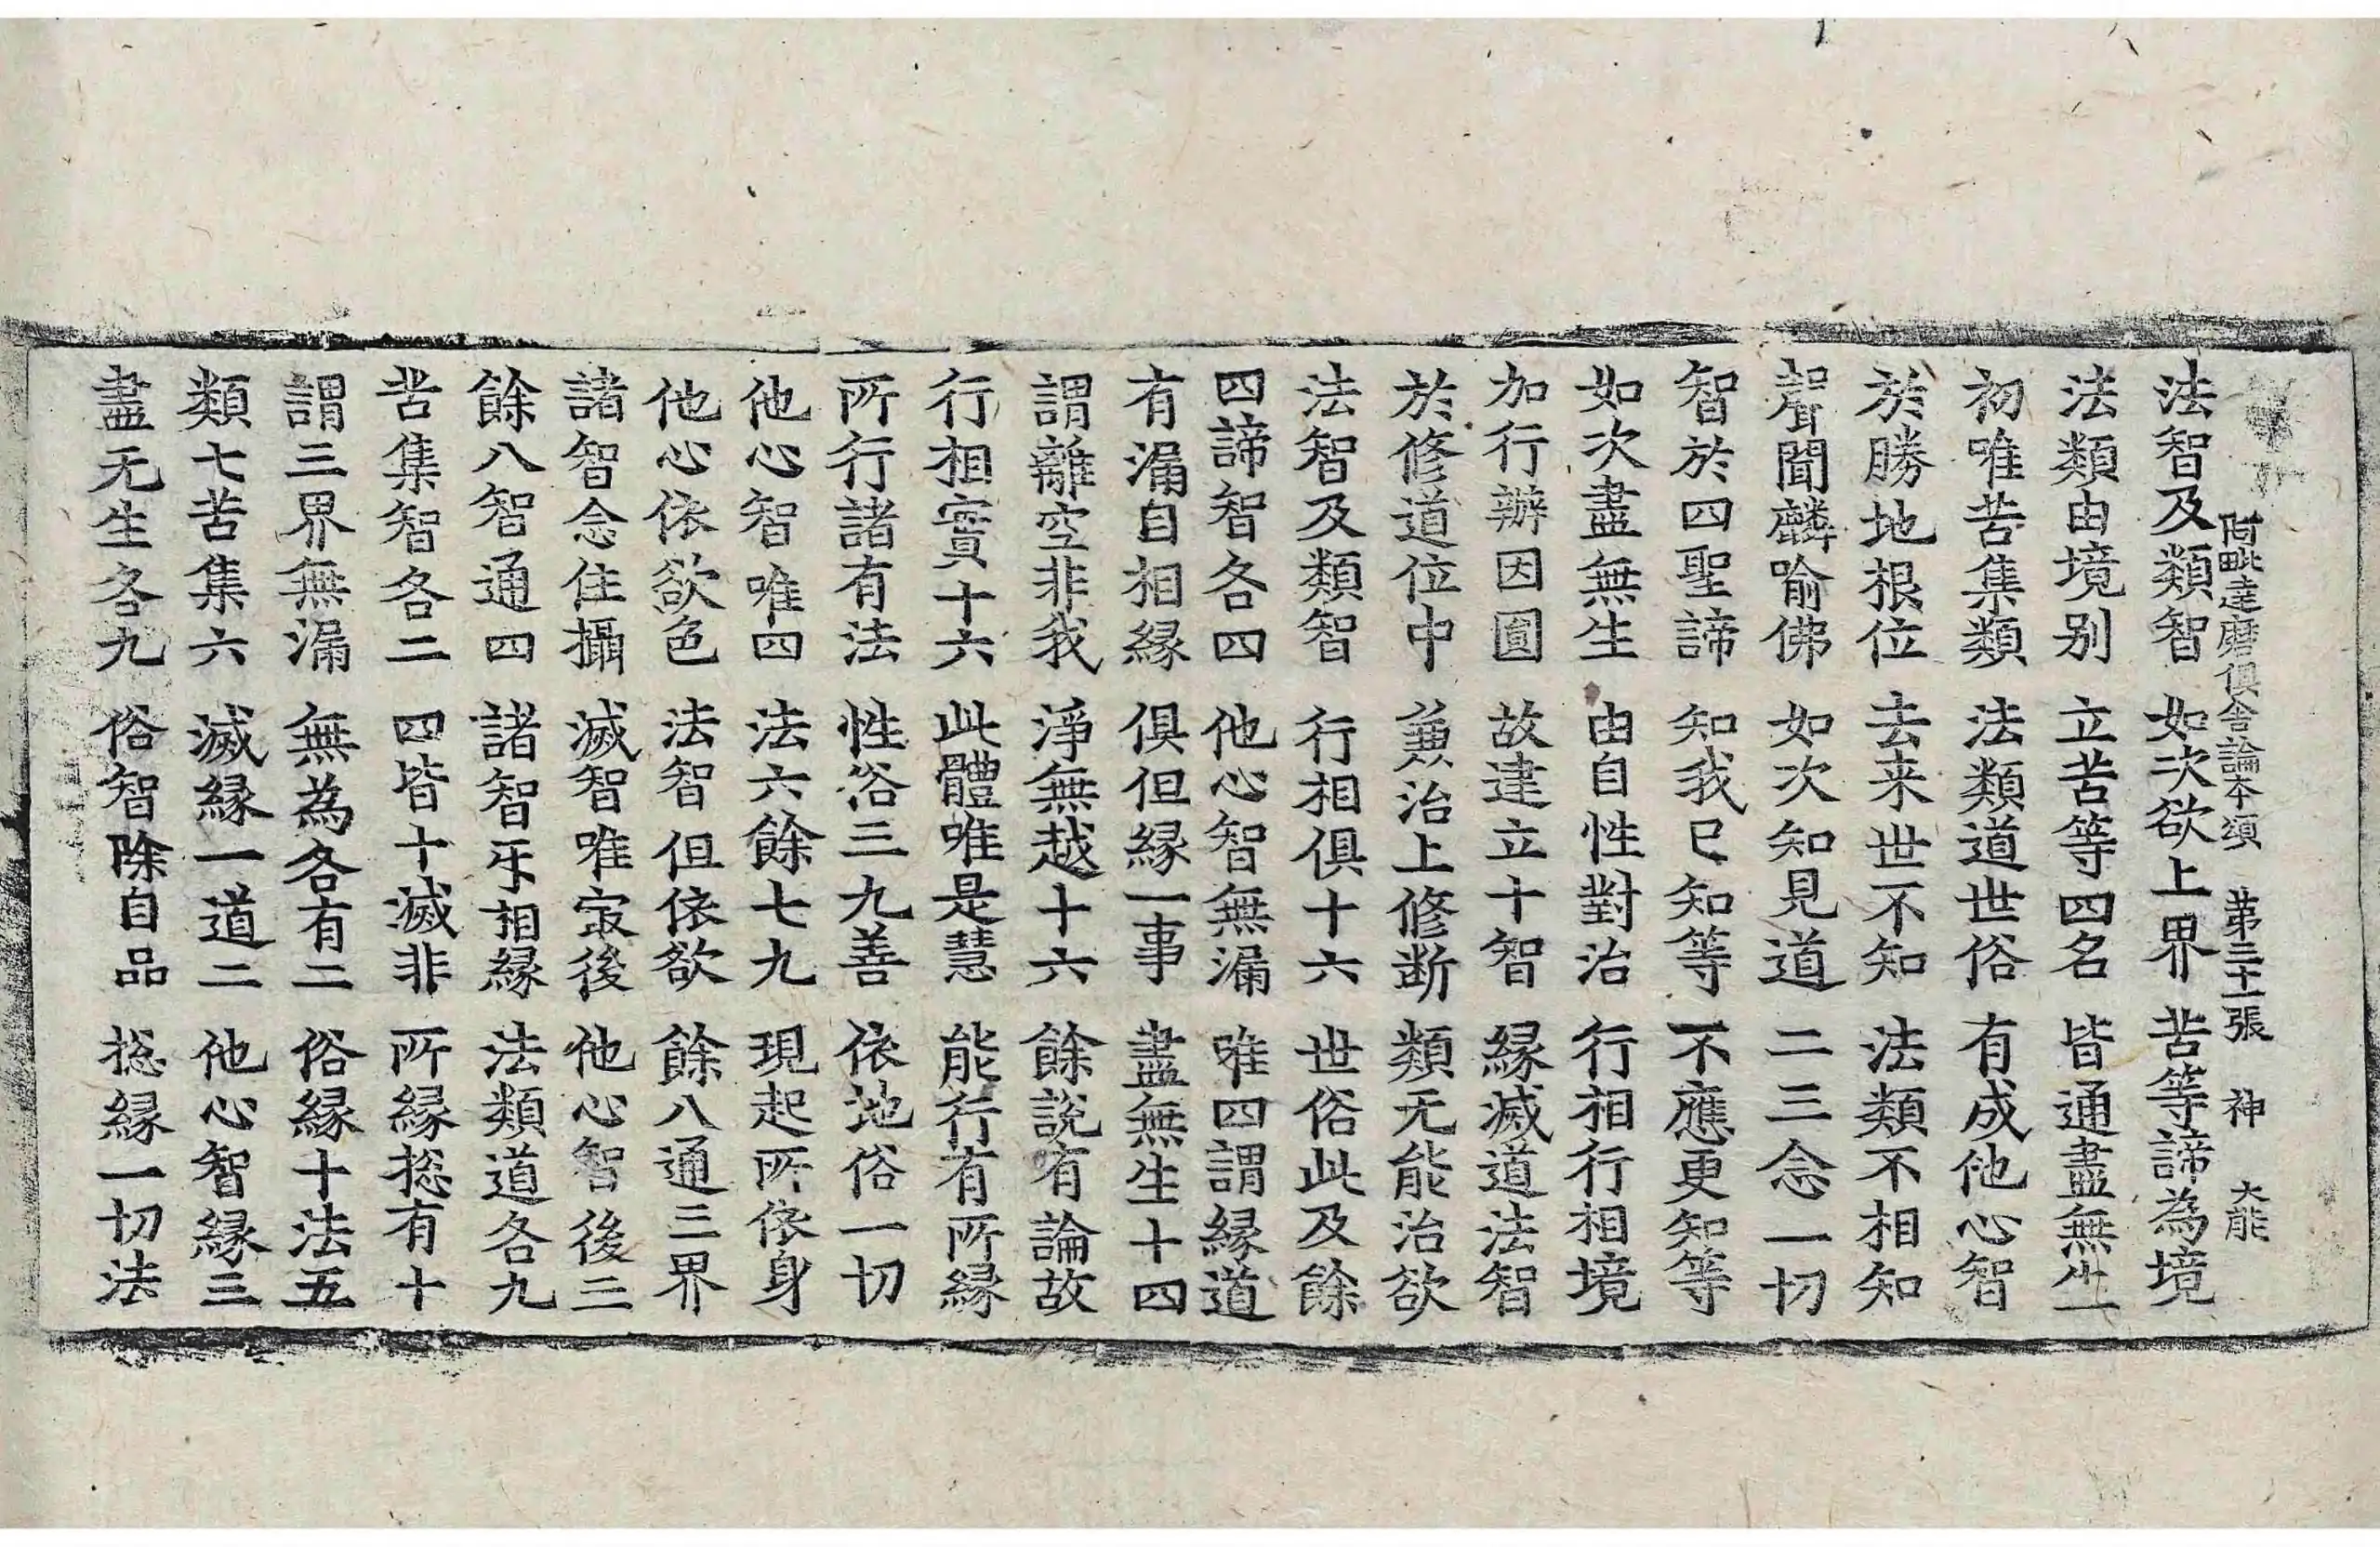 阿毗達磨俱舍論本頌 第三十一張 神 大能
法智及類智 如次欲上界 苦等諦為境
法類由境別 立苦等四名 皆通盡無生
初唯苦集類 法類道世俗 有成他心智
於勝地根位 去来世不知 法類不相知
聲聞麟喻佛 如次知見道 二三念一切
智於四聖諦 知我已知等 不應更知等
如次盡無生 由自性對治 行相行相境
加行辦因圓 故建立十智 縁滅道法智
於修道位中 兼治上修断 類无能治欲
法智及類智 行相俱十六 世俗此及餘
四諦智各四 他心智無漏 唯四謂縁道
有漏自相縁 俱但縁一事 盡無生十四
謂離空非我 淨無越十六 餘說有論故
行相實十六 此體唯是慧 能行有所縁
所行諸有法 性俗三九善 依地俗一切
他心智唯四 法六餘七九 現起所依身
他心依欲色 法智但依欲 餘八通三界
諸智念住攝 滅智唯㝡後 他心智後三
餘八智通四 諸智㸦相縁 法類道各九
苦集智各二 四皆十滅非 所縁揔有十
謂三界無漏 無為各有二 俗縁十法五
類七苦集六 滅縁一道二 他心智縁三
盡无生各九 俗智除自品 揔縁一切法